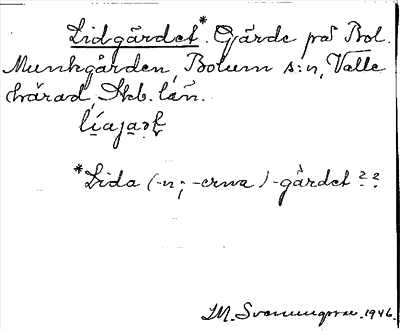 Lidgärdet*. Gärde på Bol.
Munkgården, Bolum s:n, Valle
härad, Skb. län.
*Lida (-n; -erna)-gärdet ??
M. 1946.